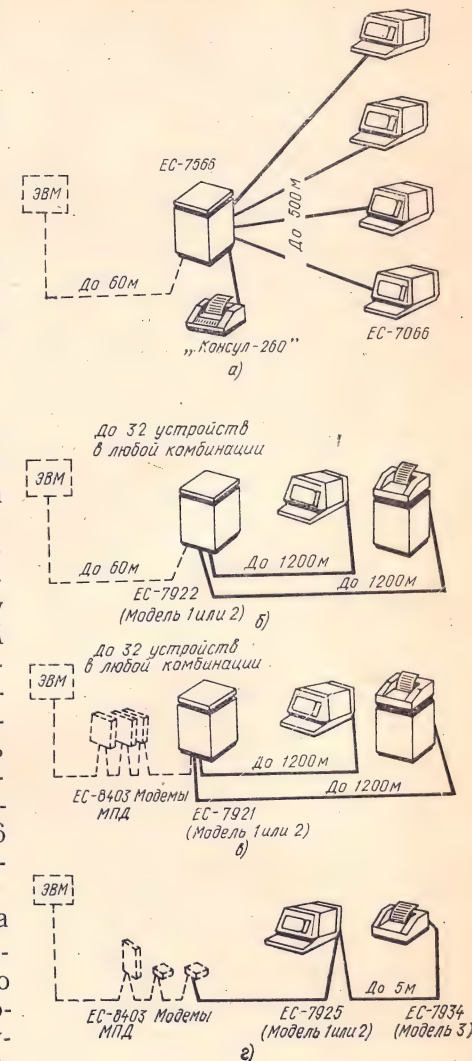 ЕС-7566
ЭВМ
До 500м
До 60м
ЕС-7066
„Консул-260"
а)
До 32 устройств
в любой комбинации
ЭВМ
До 60м
До 1200м
До 1200м
ЕС-7922
(Модель 1 или 2)
б)
До 32 устройств
в любой комбинации
ЭВМ
До 1200м
До 1200м
ЕС-8403 Модемы
МПД
ЕС-7921
(Модель 1 или 2)
в)
ЭВМ
До 5м
ЕС-8403 Модемы
МПД
ЕС-7925
(Модель 1 или 2)
ЕС-7934
(Модель 3)
г)